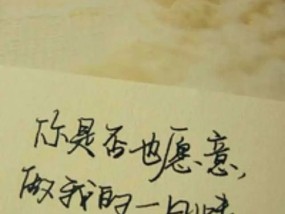 你是否也愿意,
做我的一